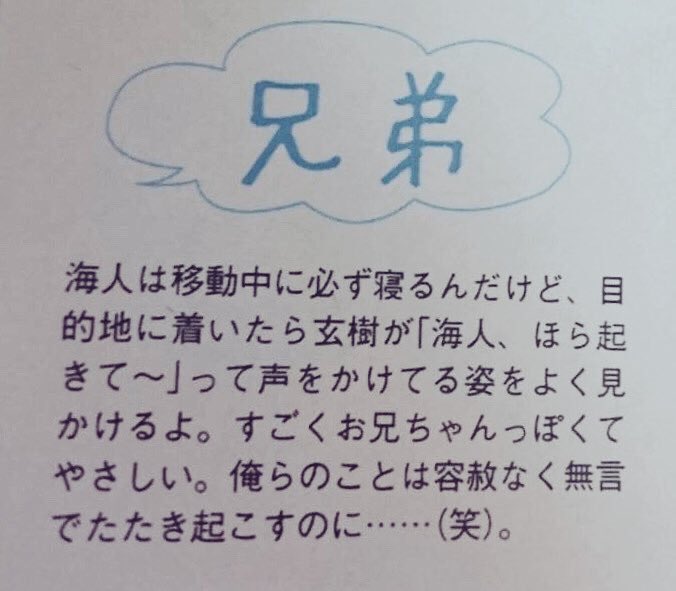 兄弟
海人は移動中に必ず寝るんだけど、目
的地に着いたら玄樹が「海人、ほら起
きて〜」って声をかけてる姿をよく見
かけるよ。すごくお兄ちゃんっぽくて
やさしい。俺らのことは容赦なく無言
でたたき起こすのに……(笑)。